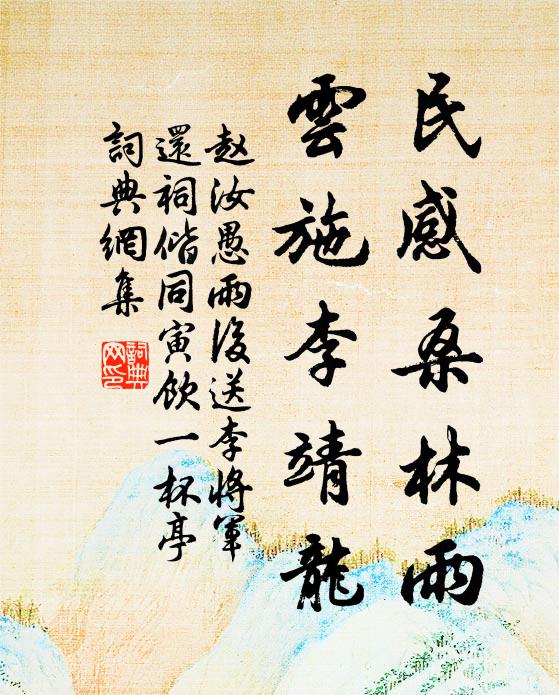 民感桑林雨
雲施李靖龍
赵汝愚雨後送李将軍
還祠偕同寅飲一杯亭
詞典網集
詞典網印